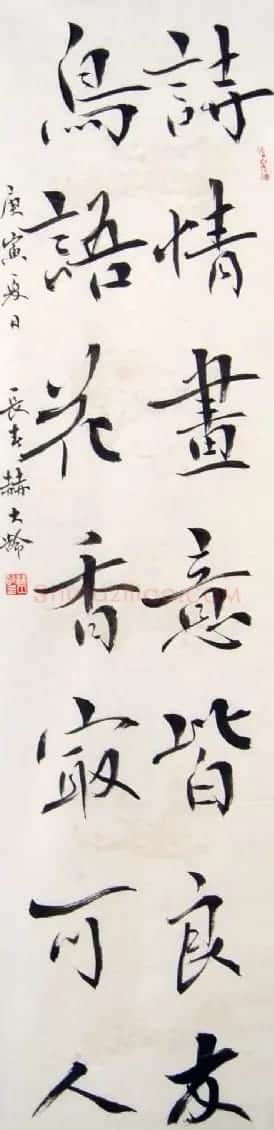 詩情畫意皆良友
鳥語花香最可人
庚寅夏日 長春赫大齡